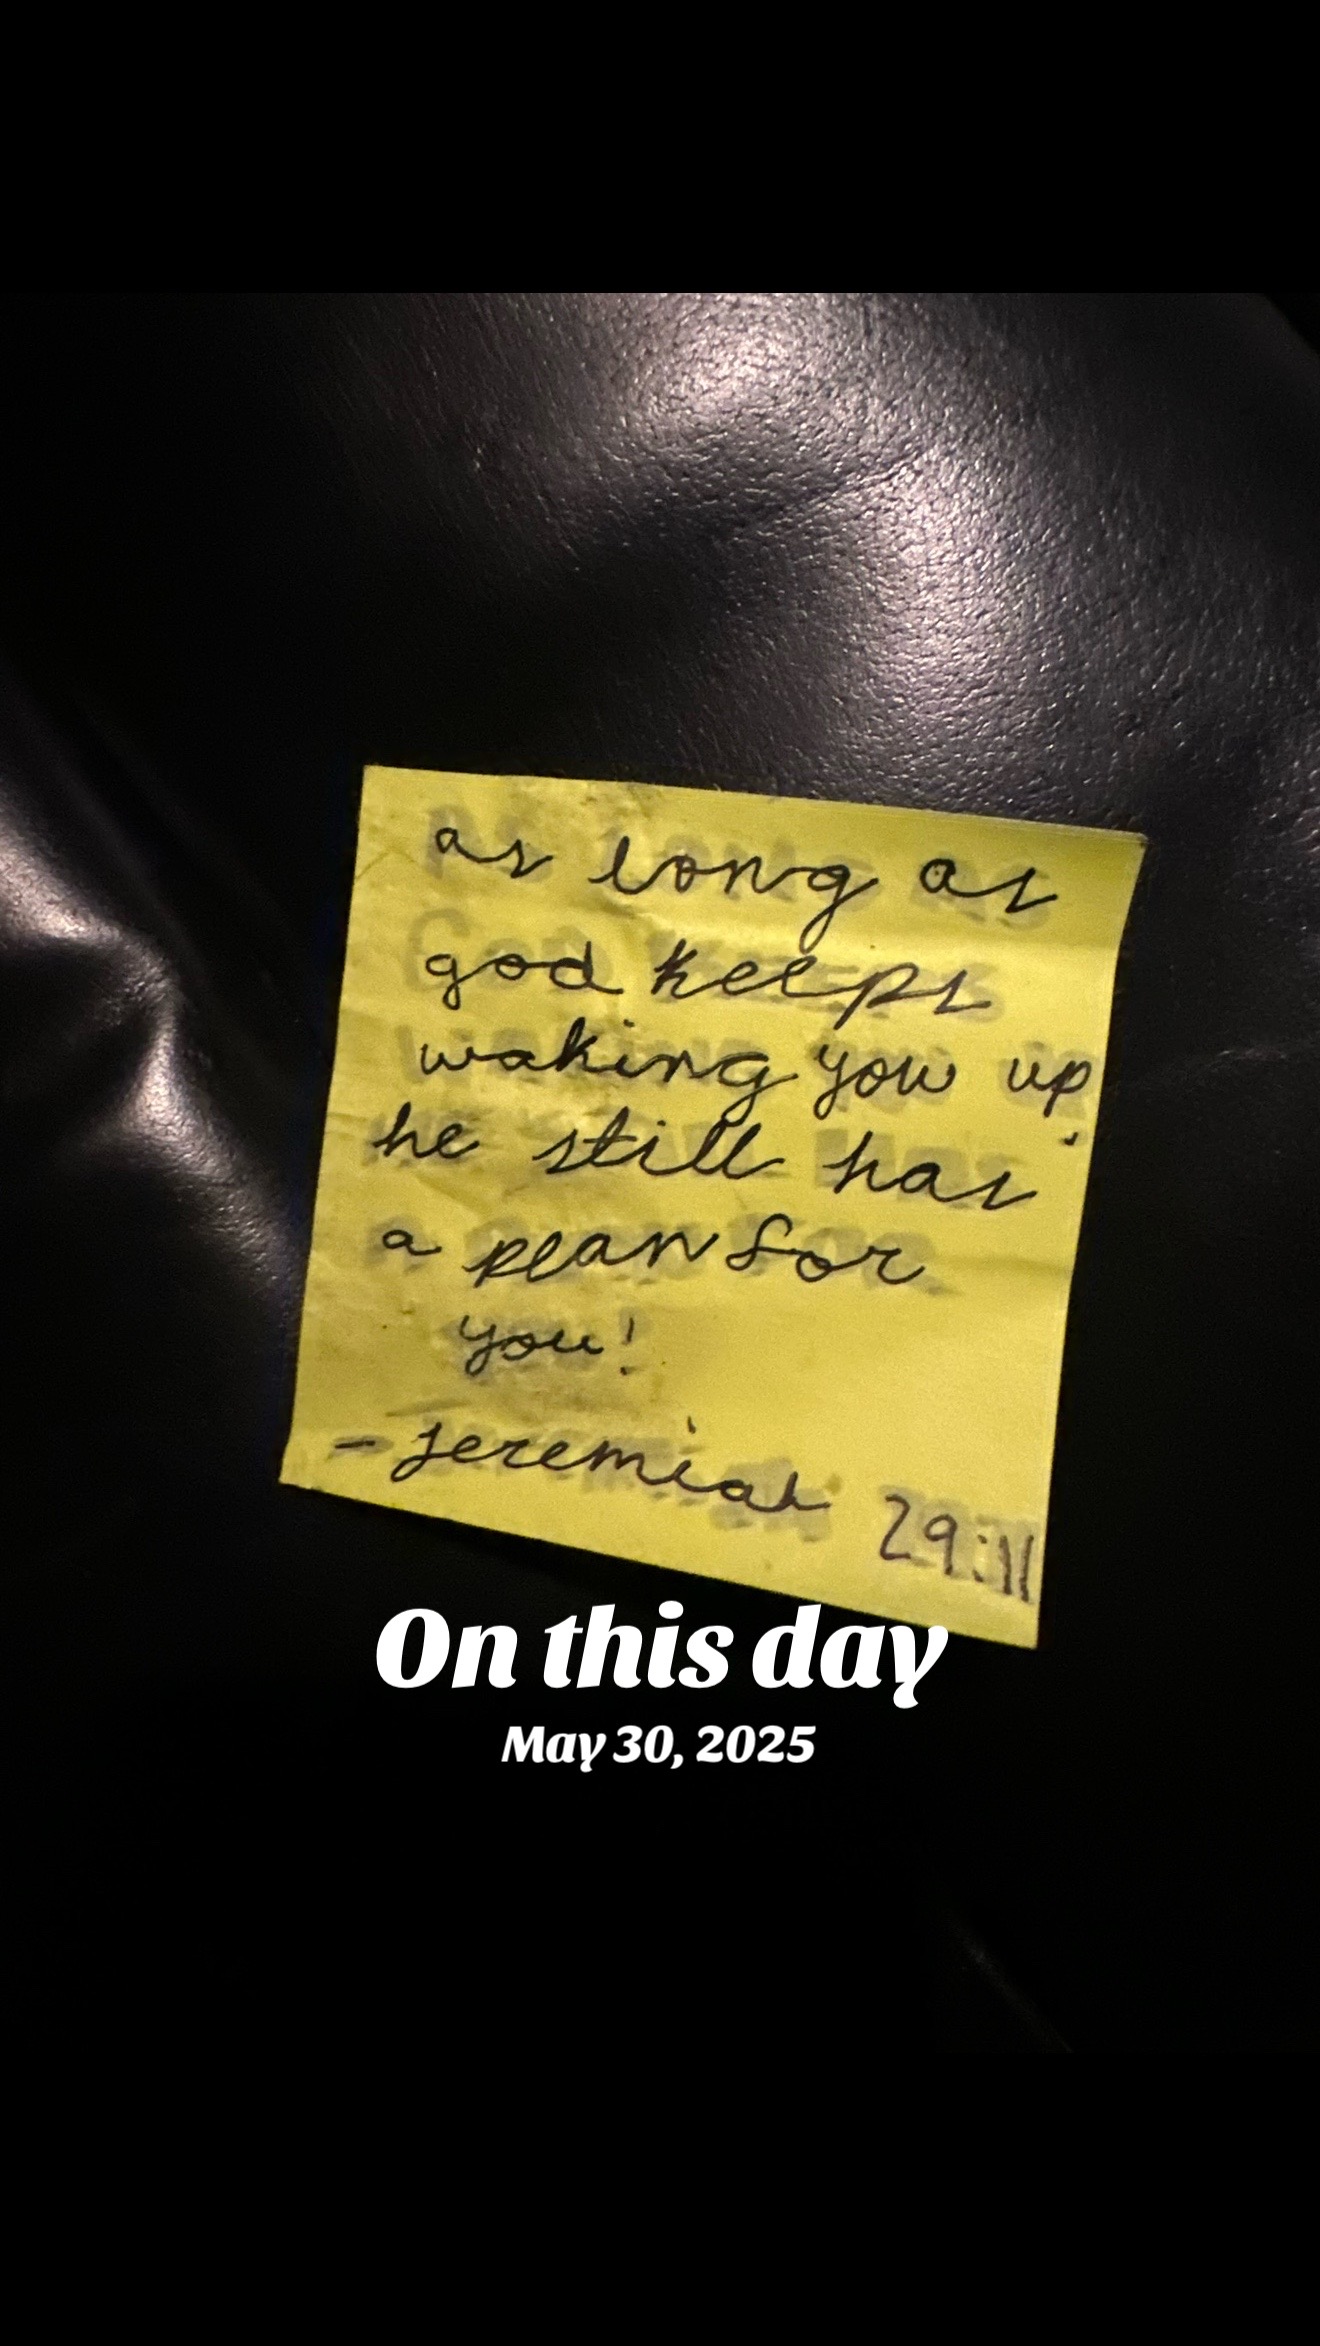 as long as
god keeps
waking you up,
he still has
a plan for
you!
- jeremiah 29:11
On this day
May 30, 2025